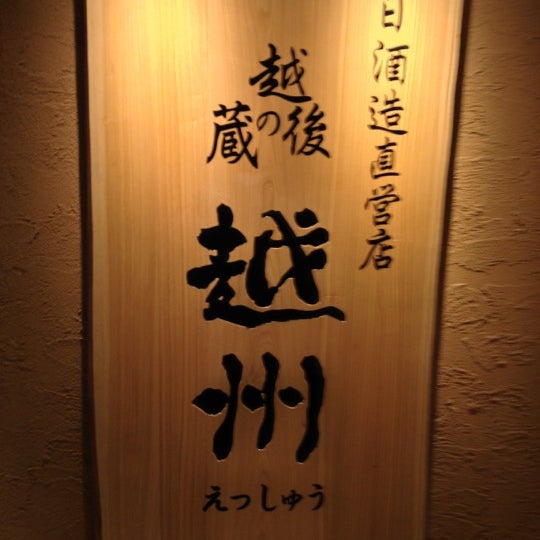 日酒造直営店
越後
の
蔵
越州
えっしゅう